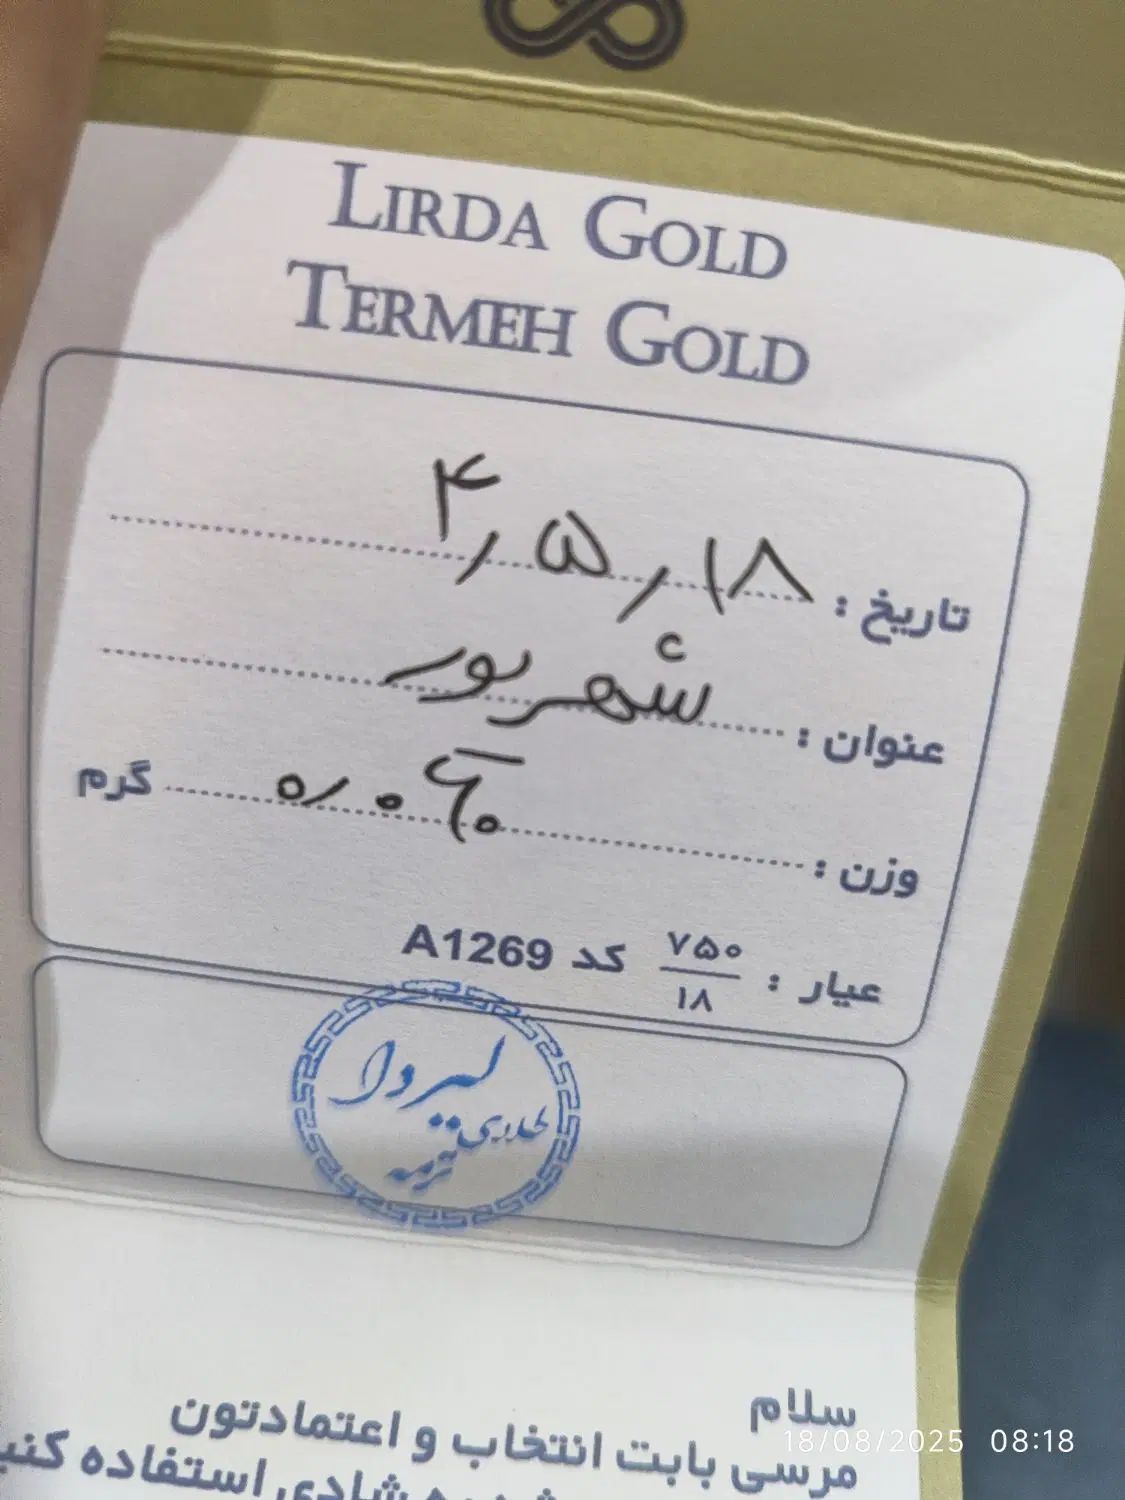 LIRDA GOLD
TERMEH GOLD
تاریخ : ۴,۵,۱۸
عنوان : شهریور
وزن : گرم
عیار : ۷۵۰/۱۸ کد A1269
لیردا
ترمه
سلام
مرسی بابت انتخاب و اعتمادتون
شادی استفاده
18/08/2025 08:18